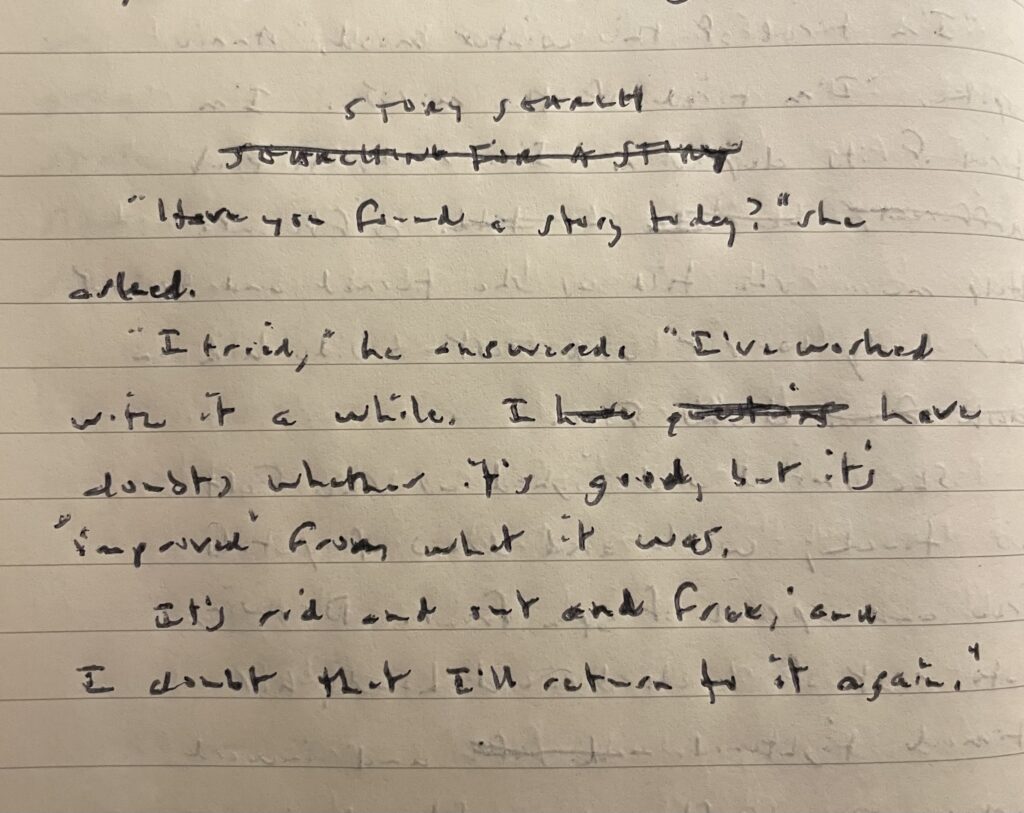 STORY SEARCH
SEARCHING FOR A STORY
"Have you found a story today?" she
asked.
"I tried," he answered. "I've worked
with it a while. I have questions have
doubts whether it's good, but it's
"improved" from what it was.
It's rid and out and free, and
I doubt that I'll return to it again."